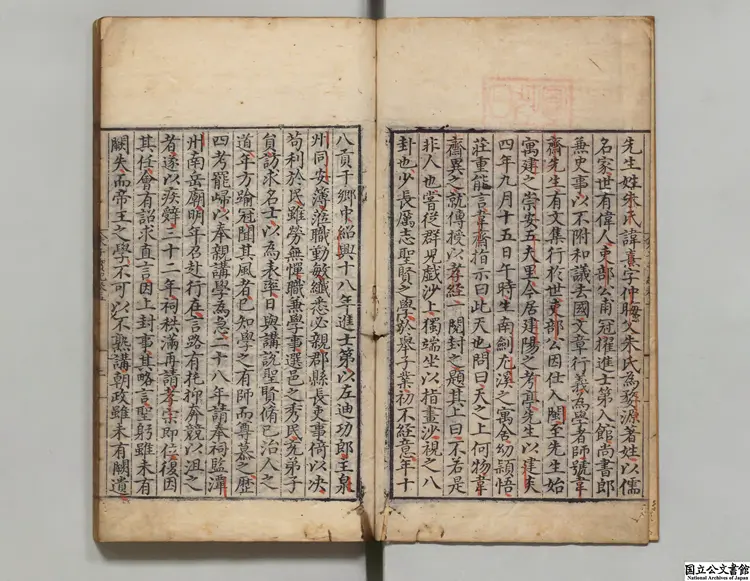 先生姓朱氏諱熹字仲晦父朱氏為婺源著姓以儒
名家世有偉人吏部公甫冠擢進士第入館尚書郎
兼史事以不附和議去國文章行義為學者師號韋
齋先生有文集行於世吏部公因仕入閩至先生始
寓建之崇安五夫里今居建陽之考亭先生以建炎
四年九月十五日午時生南劍尤溪之寓舍幼穎悟
莊重能言韋齋指示曰此天也問曰天之上何物韋
齋異之就傅授以孝經一閱封之題其上曰不若是
非人也嘗從群兒戲沙上獨端坐以指畫沙視之八
卦也少長厲志聖賢之學於舉子業初不經意年十
八貢于鄉中紹興十八年進士第以左迪功郎主泉
州同安簿涖職勤敏纖悉必親郡縣長吏事倚以決
苟利於民雖勞無憚職兼學事選邑之秀民充弟子
員訪求名士以為表率日與講說聖賢脩己治人之
道年方踰冠聞其風者已知學之有師而尊慕之歷
四考罷歸以奉親講學為急二十八年請奉祠監潭
州南岳廟明年召赴行在言路有托抑奔競以沮之
者遂以疾辭三十二年祠秩滿再請孝宗即位復因
其任會有詔求直言因上封事其略言聖躬雖未有
闕失而帝王之學不可以不熟講朝政雖未有闕遺
国立公文書館
National Archives of Japan